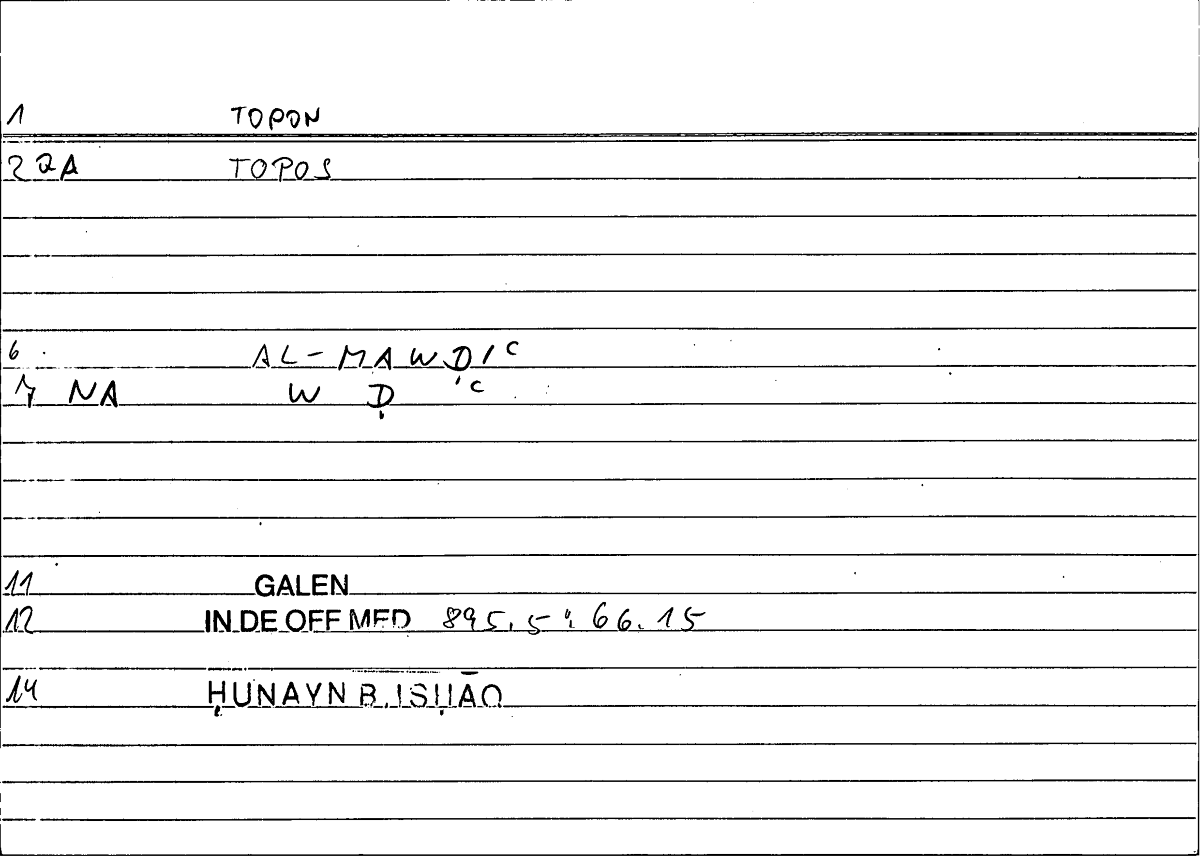 1 TOPON
2 QA TOPOS
6 AL-MAWḌIʿ
7 NA W Ḍ ʿ
11 GALEN
12 IN DE OFF MED 895.5 : 66.15
14 ḤUNAYN B. ISḤĀQ